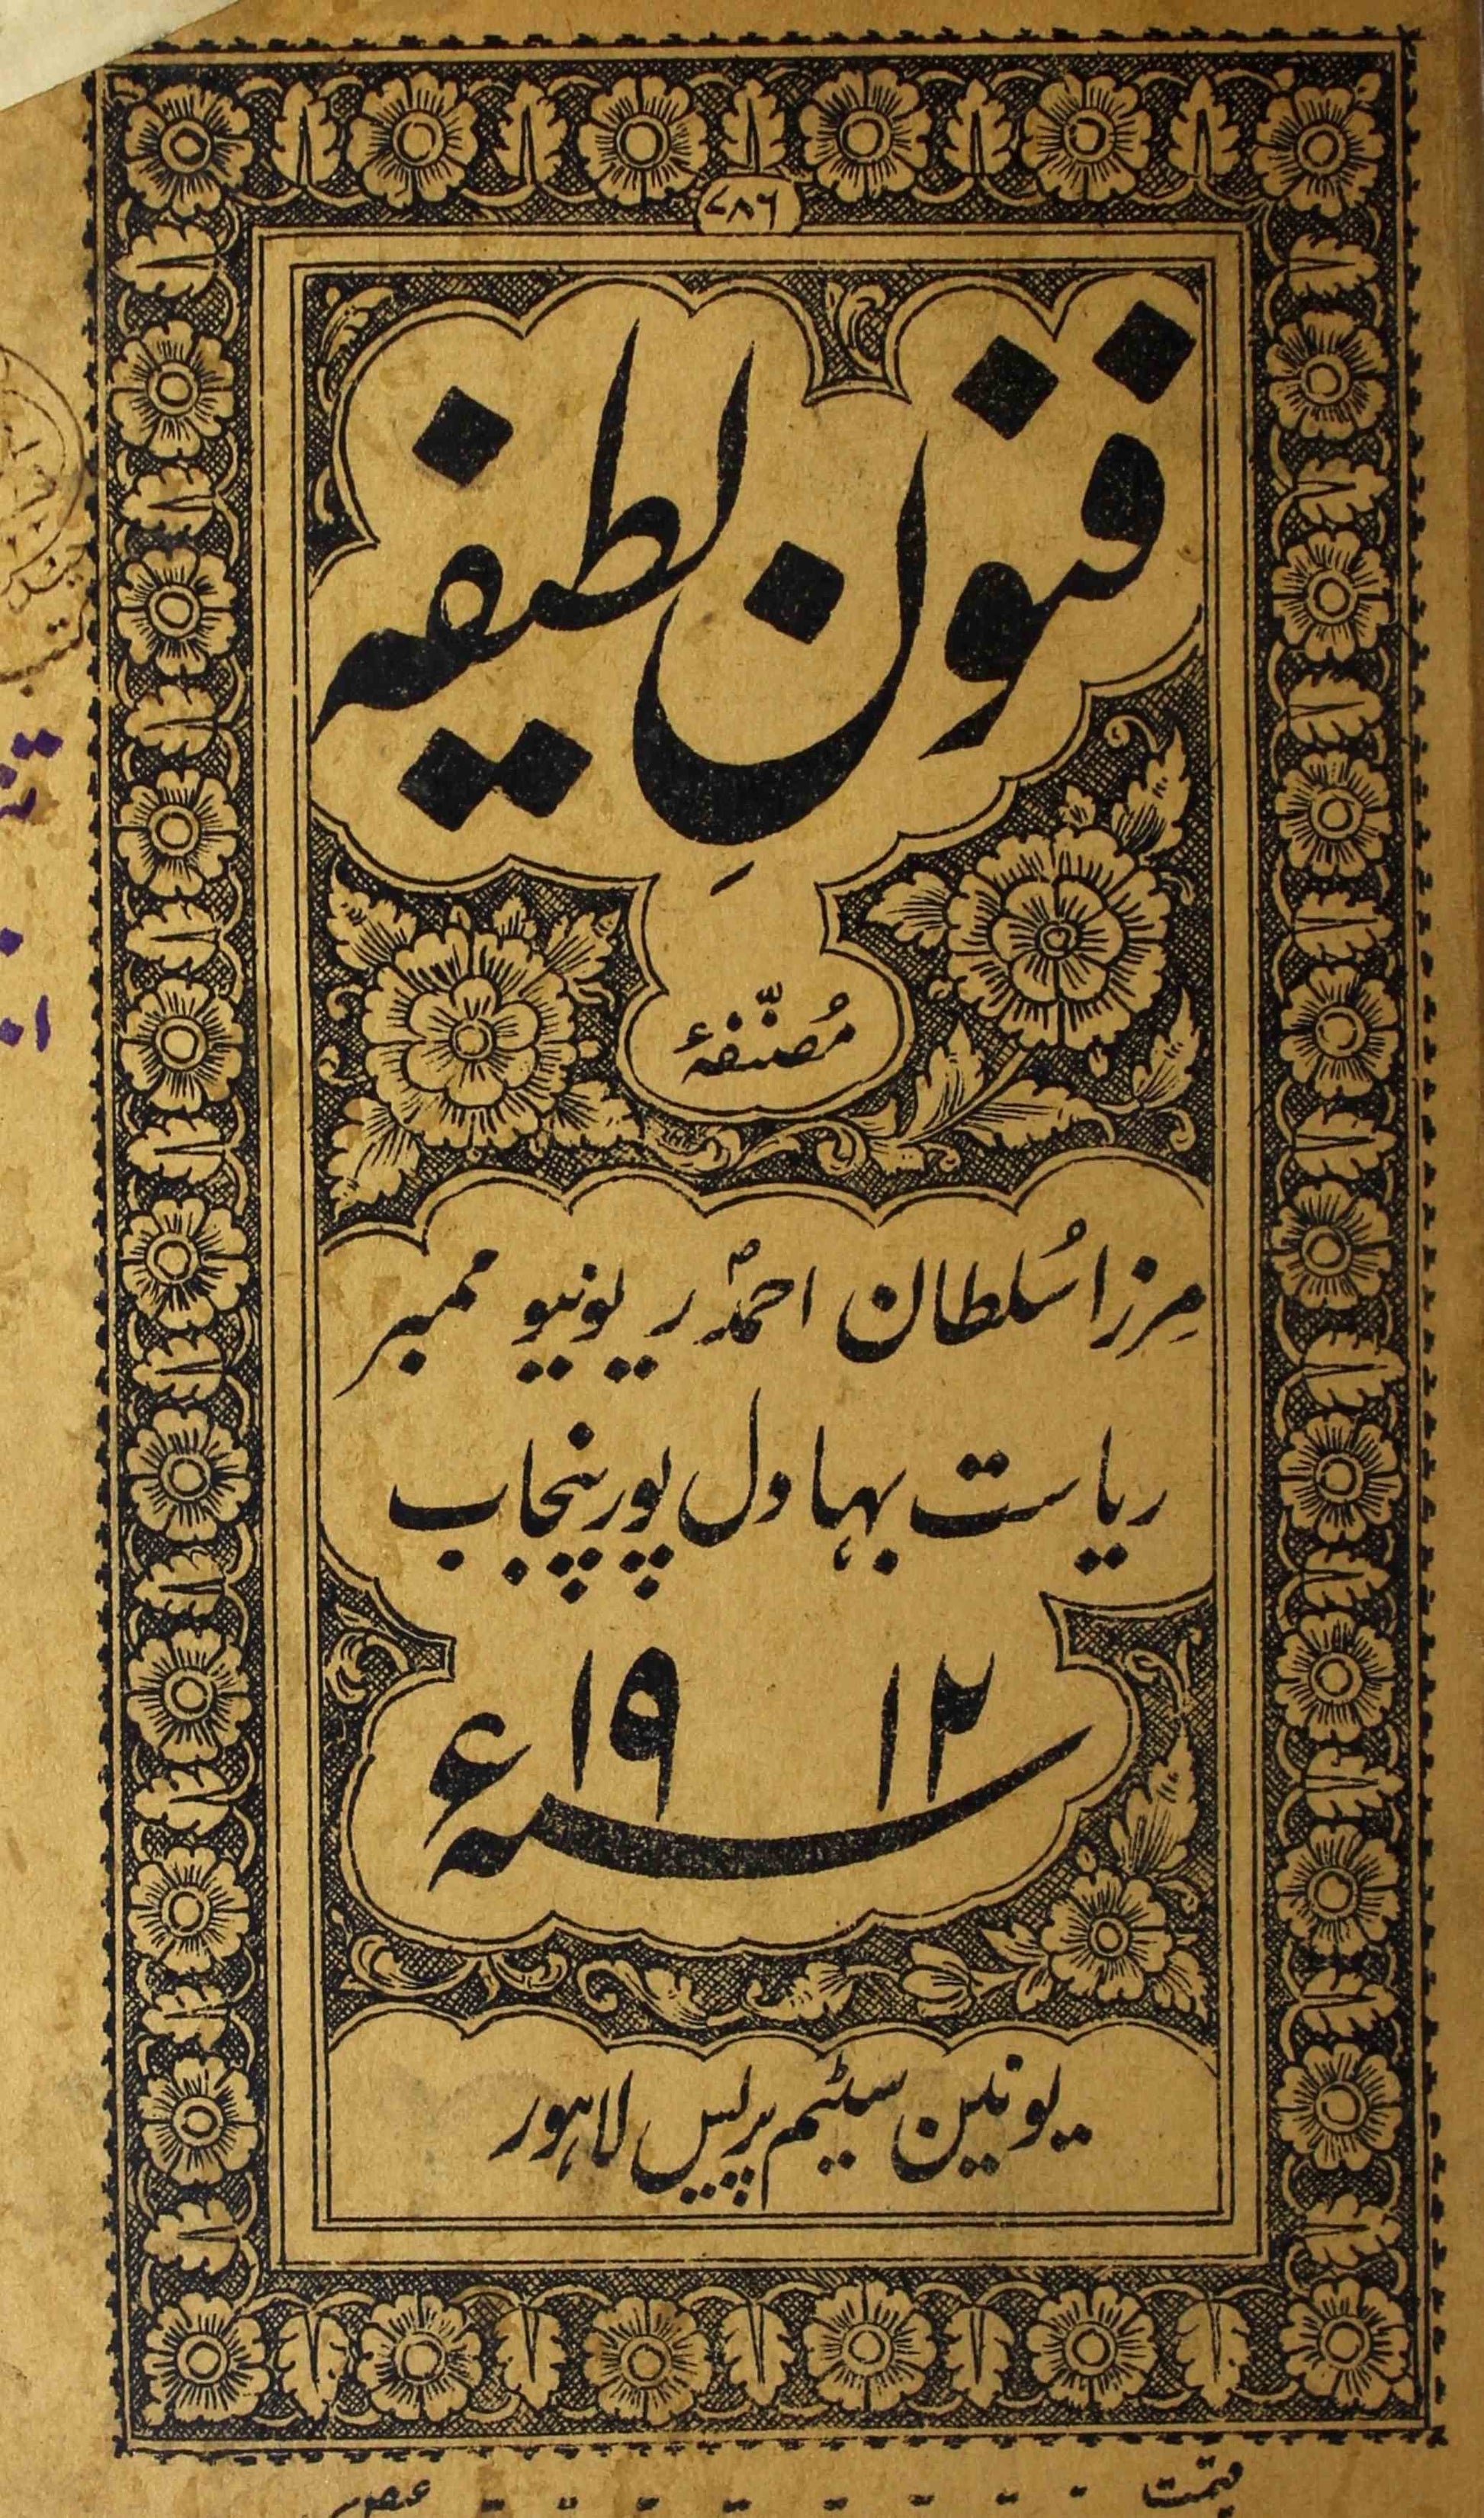 ۷۸۶
فنونِ لطیفہ
مُصنّفۂ
مِرزا سُلطان احمدؐ ریونیو ممبر
ریاست بہاول پور پنجاب
سنہ ۱۹۱۲ء
یونین سٹیم پریس لاہور
قیمت - - - - - - - -